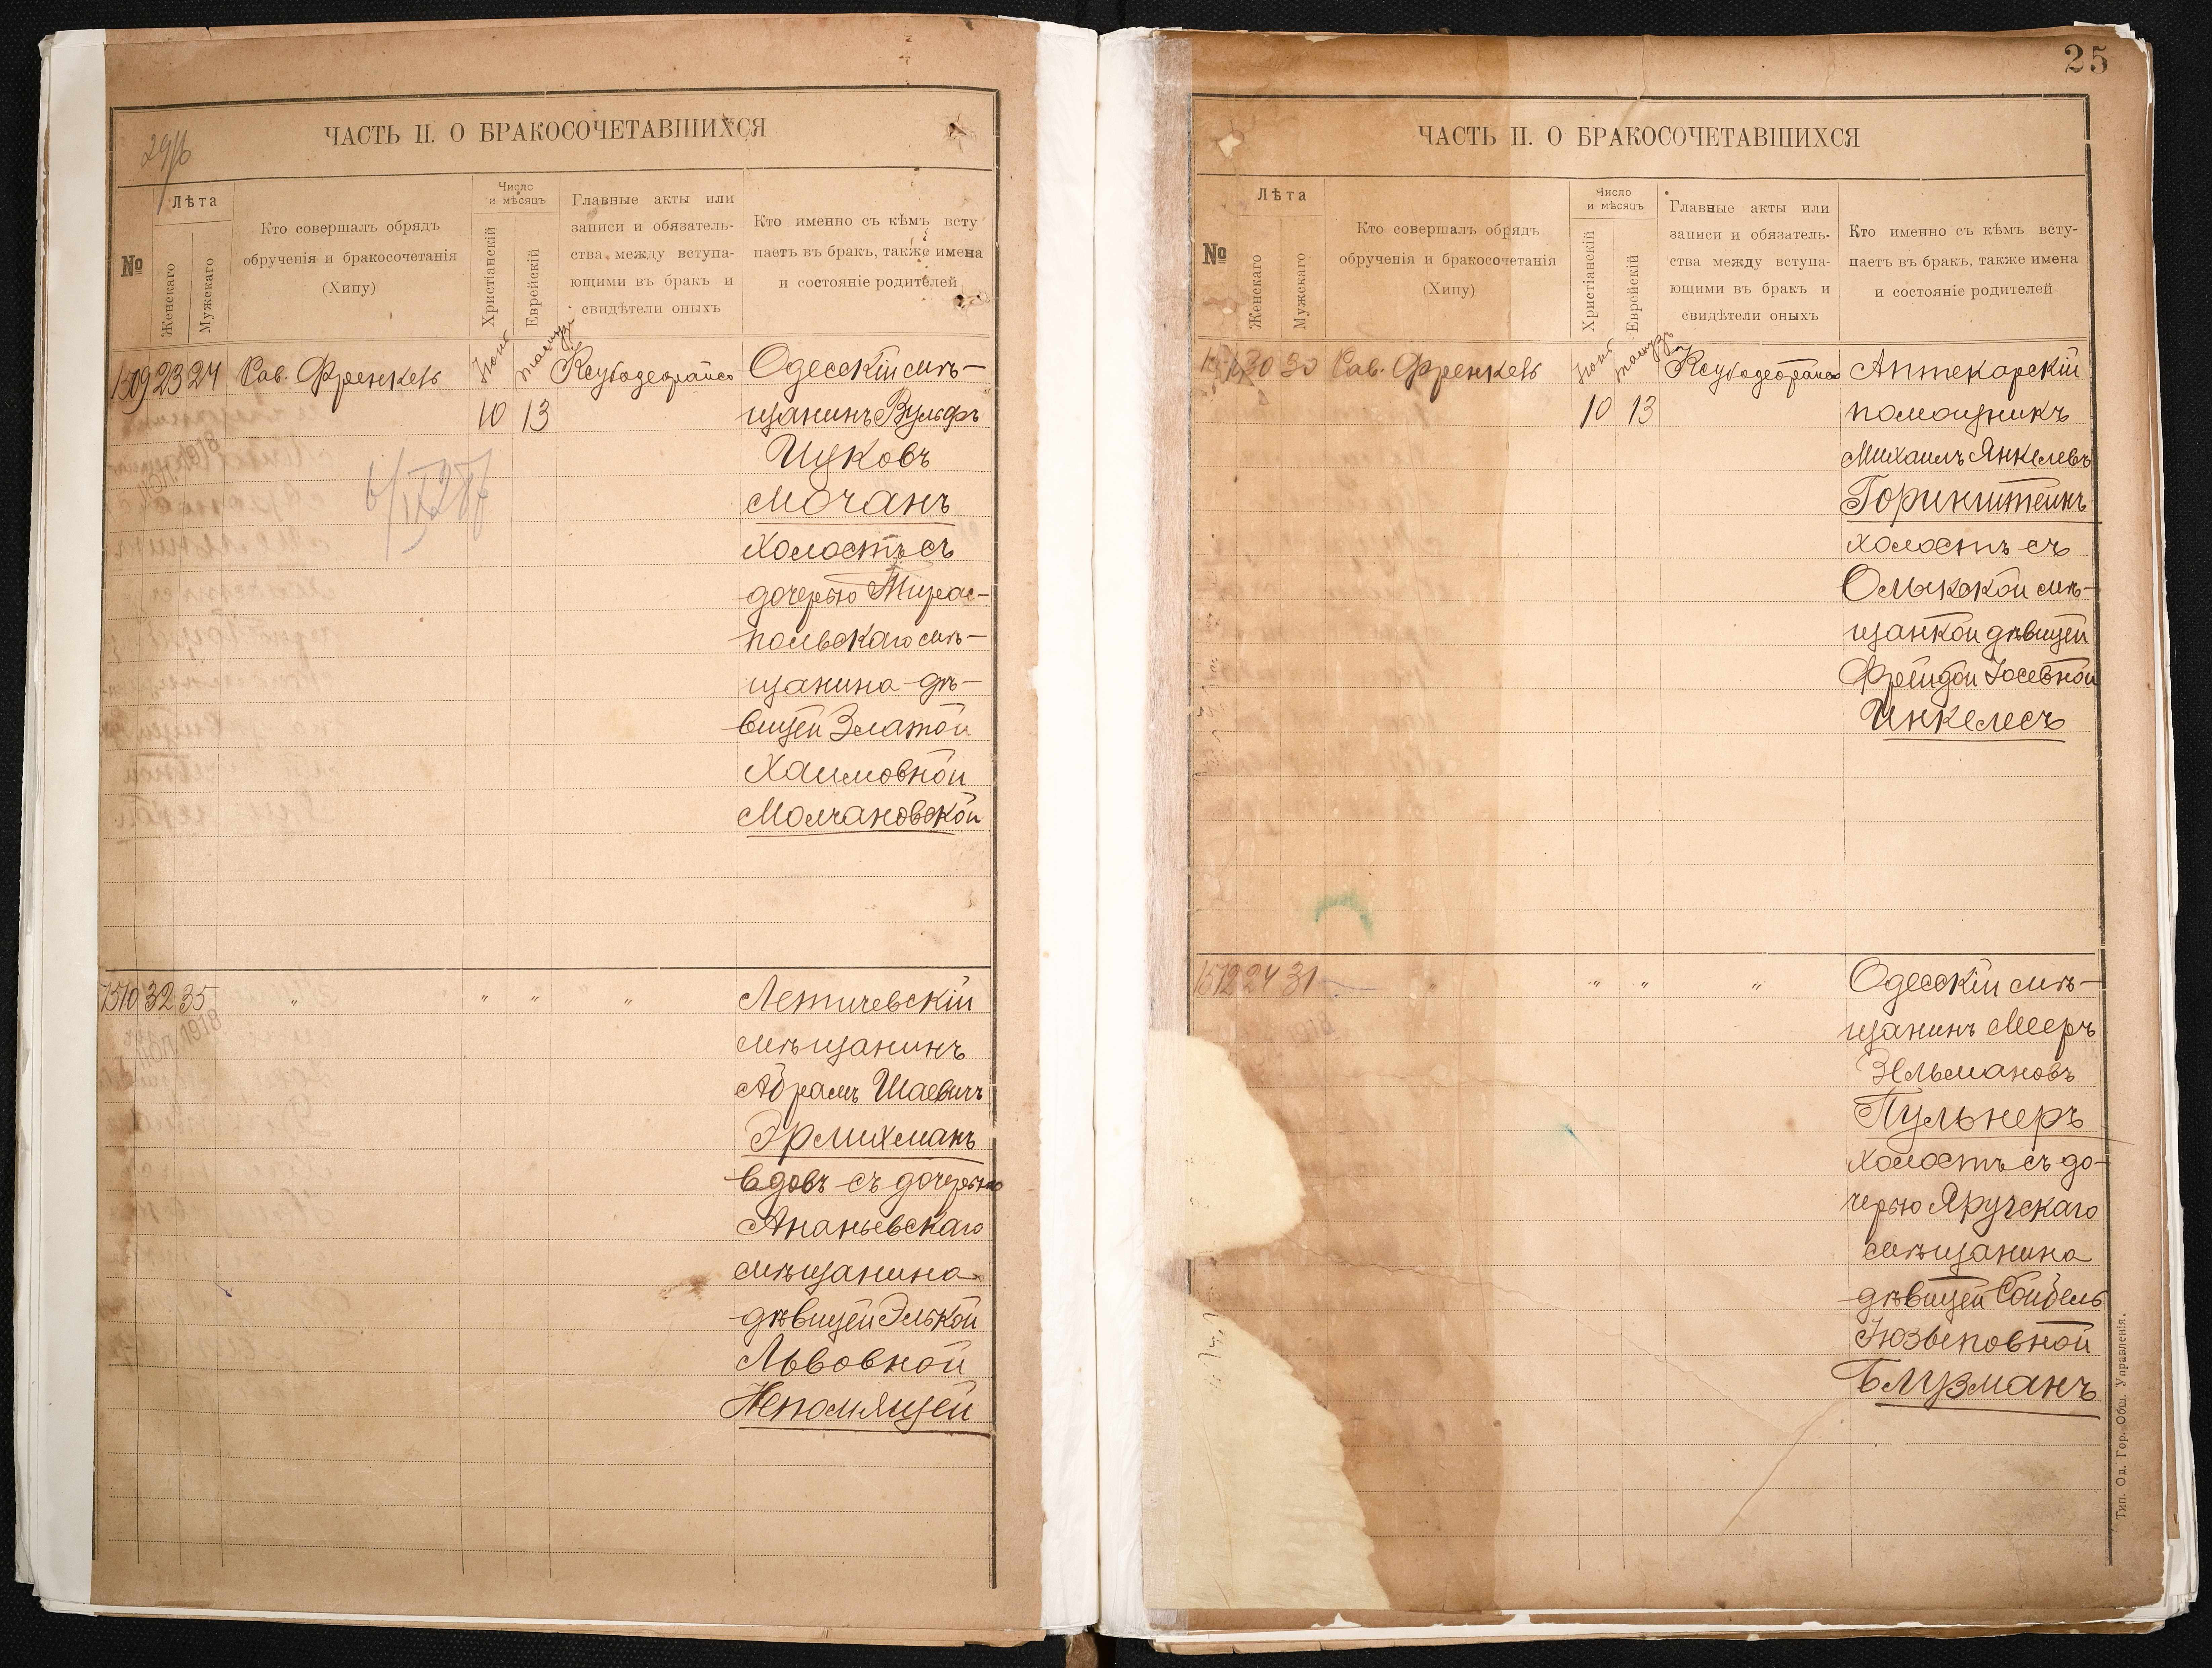 29/6
ЧАСТЬ II. О БРАКОСОЧЕТАВШИХСЯ
№
Лѣта
Женскаго
Мужскаго
Кто совершалъ обрядъ
обрученія и бракосочетанія
(Хипу)
Число
и мѣсяцъ
Христіанскій
Еврейскій
Главные акты или
записи и обязатель-
ства между вступа-
ющими въ бракъ и
свидѣтели оныхъ
Кто именно съ кѣмъ всту
паетъ въ бракъ, также имена
и состояніе родителей
1509 23 24 Рав. Френкель
Іюнь
10
Тамузъ
13
Ксубодеорайсо
Одесскій мѣ-
щанинъ Вульфъ
Ицковъ
Мочанъ
холостъ съ
дочерью Тирас-
польскаго мѣ-
щанина дѣ-
вицей Златой
Хаимовной
Молчановской
1510 32 35 " " " "
1918
Летичевскій
мѣщанинъ
Абрамъ Шаевичъ
Эрлихманъ
вдовъ съ дочерью
Ананьевскаго
мѣщанина
дѣвицей Элькой
Львовной
Непомлящей
25
ЧАСТЬ II. О БРАКОСОЧЕТАВШИХСЯ
№
Лѣта
Женскаго
Мужскаго
Кто совершалъ обрядъ
обрученія и бракосочетанія
(Хипу)
Число
и мѣсяцъ
Христіанскій
Еврейскій
Главные акты или
записи и обязатель-
ства между вступа-
ющими въ бракъ и
свидѣтели оныхъ
Кто именно съ кѣмъ всту-
паетъ въ бракъ, также имена
и состояніе родителей
30 30 Рав. Френкель
Іюнь
10
Тамузъ
13
Ксубодеорайсо
Аптекарскій
помощникъ
Михаилъ Янкелевъ
Горинштейнъ
холостъ съ
Олыкской мѣ-
щанкой дѣвицей
Фрейдой Іосевной
Инкелесъ
1512 24 31 " " " "
Одесскій мѣ-
щанинъ Мееръ
Зельмановъ
Пульнеръ
холостъ съ до-
черью Яругскаго
мѣщанина
дѣвицей Сойбель
Іюзьеповной
Блузманъ
Тип. Од. Гор. Общ. Управленія.